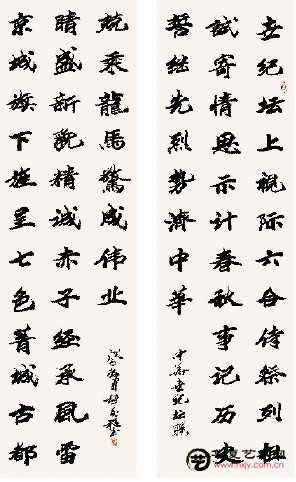 世纪坛上视际六合列祖
诚寄情思示计春秋事记历史
誓继先烈势济中华
中华世纪坛联
京城旗下旌呈七色菁城古都
晴盛新貌精诚赤子经承風雷
兢乘龍馬驚成伟业